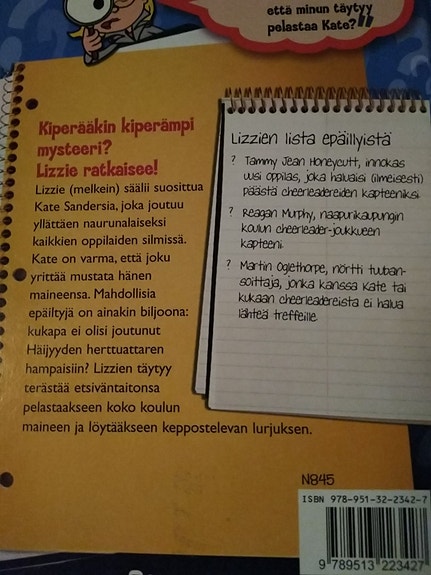 että minun täytyy
pelastaa Kate?"
Kiperääkin kiperämpi
mysteeri?
Lizzie ratkaisee!
Lizzie (melkein) säälii suosittua
Kate Sandersia, joka joutuu
yllättäen naurunalaiseksi
kaikkien oppilaiden silmissä.
Kate on varma, että joku
yrittää mustata hänen
maineensa. Mahdollisia
epäiltyjä on ainakin biljoona:
kukapa ei olisi joutunut
Häijyyden herttuattaren
hampaisiin? Lizzien täytyy
terästää etsiväntaitonsa
pelastaakseen koko koulun
maineen ja löytääkseen keppostelevan lurjuksen.
Lizzien lista epäillyistä
? Tammy Jean Honeycutt, innokas
uusi oppilas, joka haluaisi (ilmeisesti)
päästä cheerleadereiden kapteeniksi
? Reagan Murphy, naapurikaupungin
koulun cheerleader-joukkueen
kapteeni
? Martin Oglethorpe, nörtti tuuban-
soittaja, jonka kanssa Kate tai
kukaan cheerleadereista ei halua
lähteä treffeille
N845
ISBN 978-951-32-2342-7
9 789513 223427